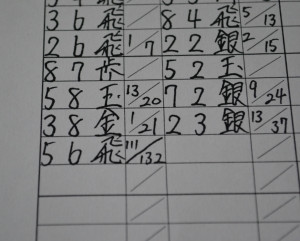 36飛 84飛 5/13
26飛 1/7 22銀 2/15
87歩 52玉
58玉 13/20 72銀 9/24
38金 1/21 23銀 13/37
56飛 111/132